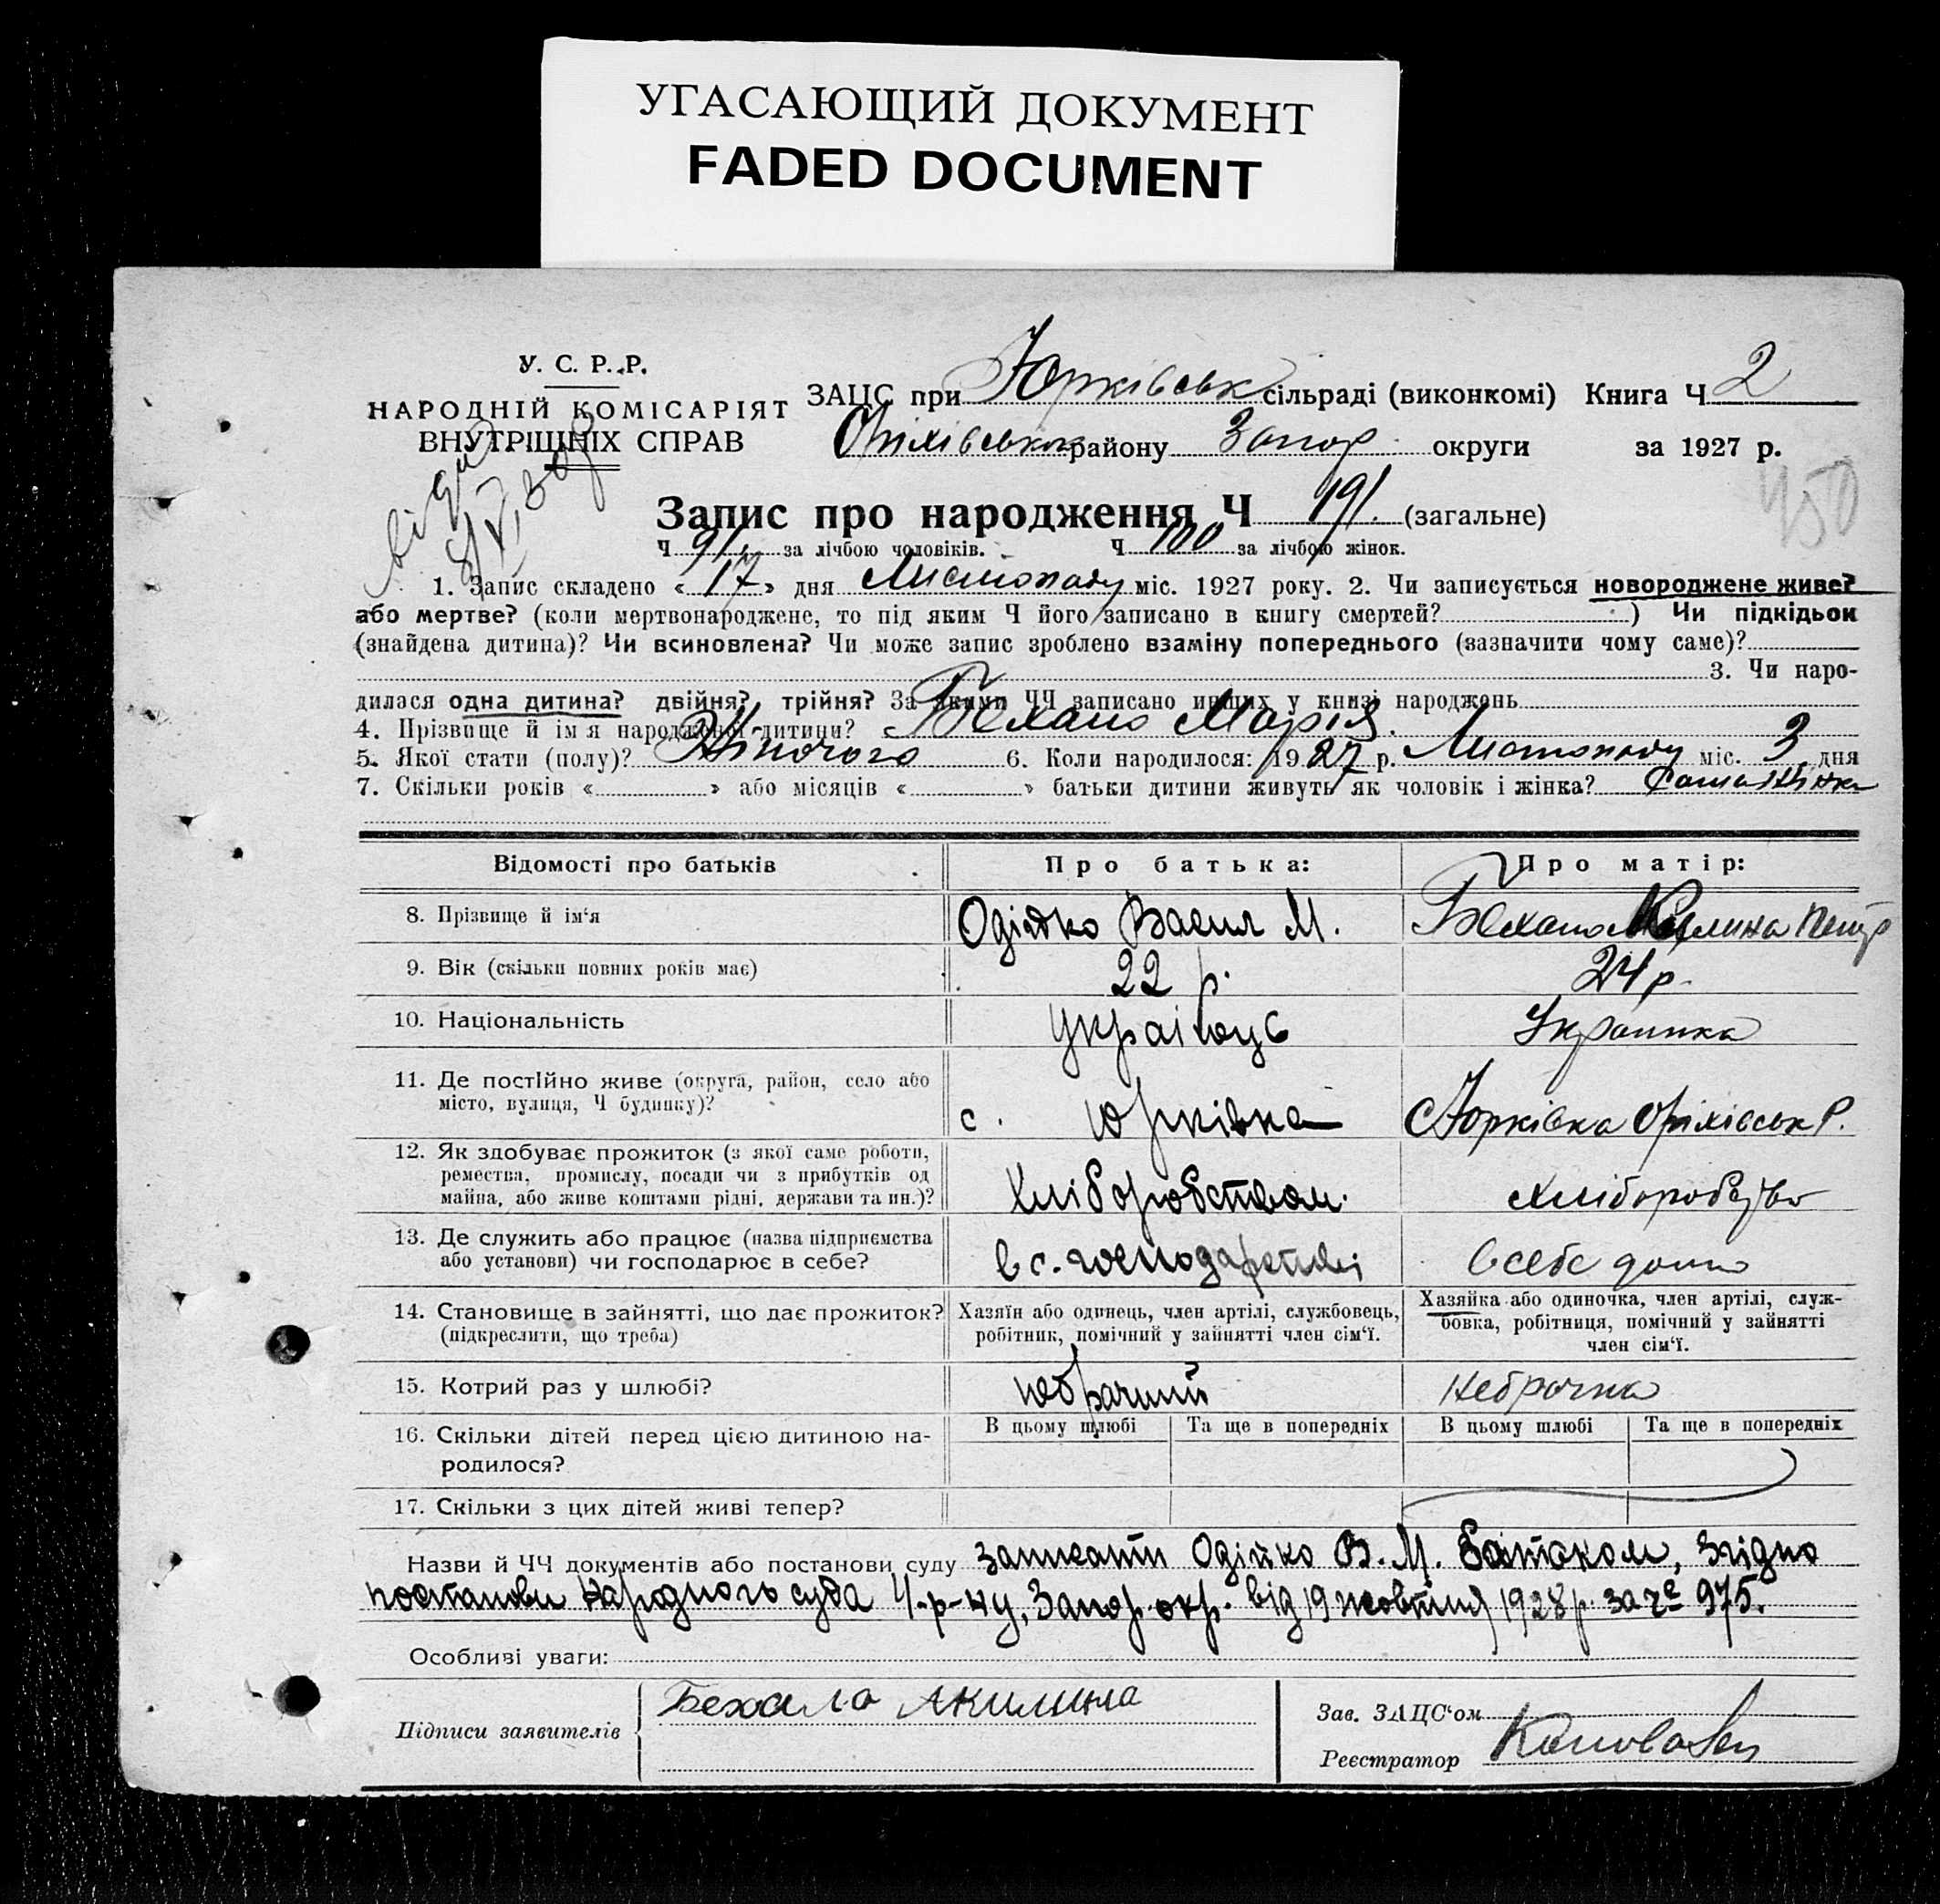 УГАСАЮЩИЙ ДОКУМЕНТ
FADED DOCUMENT
У. С. Р. Р.
НАРОДНІЙ КОМІСАРІЯТ
ВНУТРІШНІХ СПРАВ
ЗАЦС при Юрківськ сільраді (виконкомі) Книга Ч 2
Оріхівськ району Запор. округи за 1927 р.
450
Запис про народження Ч 191. (загальне)
Ч 91 за лічбою чоловіків. Ч 100 за лічбою жінок.
1. Запис складено « 17 » дня Листопаду міс. 1927 року. 2. Чи записується новороджене живе?
або мертве? (коли мертвонароджене, то під яким Ч його записано в книгу смертей? ) Чи підкідьок
(знайдена дитина)? Чи всиновлена? Чи може запис зроблено взаміну попереднього (зазначити чому саме)?
3. Чи наро-
дилася одна дитина? двійня? трійня? За якими ЧЧ записано инших у книзі народжень
4. Прізвище й ім'я народженої дитини? Бехало Марія.
5. Якої стати (полу)? Жіночого 6. Коли народилося: 1927 р. Листопаду міс. 3 дня
7. Скільки років « » або місяців « » батьки дитини живуть як чоловік і жінка?
Відомості про батьків Про батька: Про матір:
8. Прізвище й ім'я Одійко Васил М. Бехало Килина Петр
9. Вік (скільки повних років має) 22 р. 24 р.
10. Національність Українець Українка
11. Де постійно живе (округа, район, село або
місто, вулиця, Ч будинку)? с. Юрківка С Юрківка Оріхівськ Р.
12. Як здобуває прожиток (з якої саме роботи,
ремества, промислу, посади чи з прибутків од
майна, або живе коштами рідні, держави та ин.)? Хліборобством. хліборобство
13. Де служить або працює (назва підприємства
або установи) чи господарює в себе? в с. господарстві в себе дома
14. Становище в зайнятті, що дає прожиток?
(підкреслити, що треба)
Хазяїн або одинець, член артілі, службовець,
робітник, помічний у зайнятті член сім'ї.
Хазяйка або одиночка, член артілі, служ-
бовка, робітниця, помічний у зайнятті
член сім'ї.
15. Котрий раз у шлюбі? небрачний небрачна
16. Скільки дітей перед цією дитиною на-
родилося?
В цьому шлюбі Та ще в попередніх В цьому шлюбі Та ще в попередніх
17. Скільки з цих дітей живі тепер?
Назви й ЧЧ документів або постанови суду записати Одійко В. М. батьком, згідно
постанови Народного суда 4-р-ну, Запор. окр. від 19 жовтня 1928 р. за Ч 975.
Особливі уваги:
Підписи заявителів Бехало Акилина
Зав. ЗАЦС'ом
Реєстратор